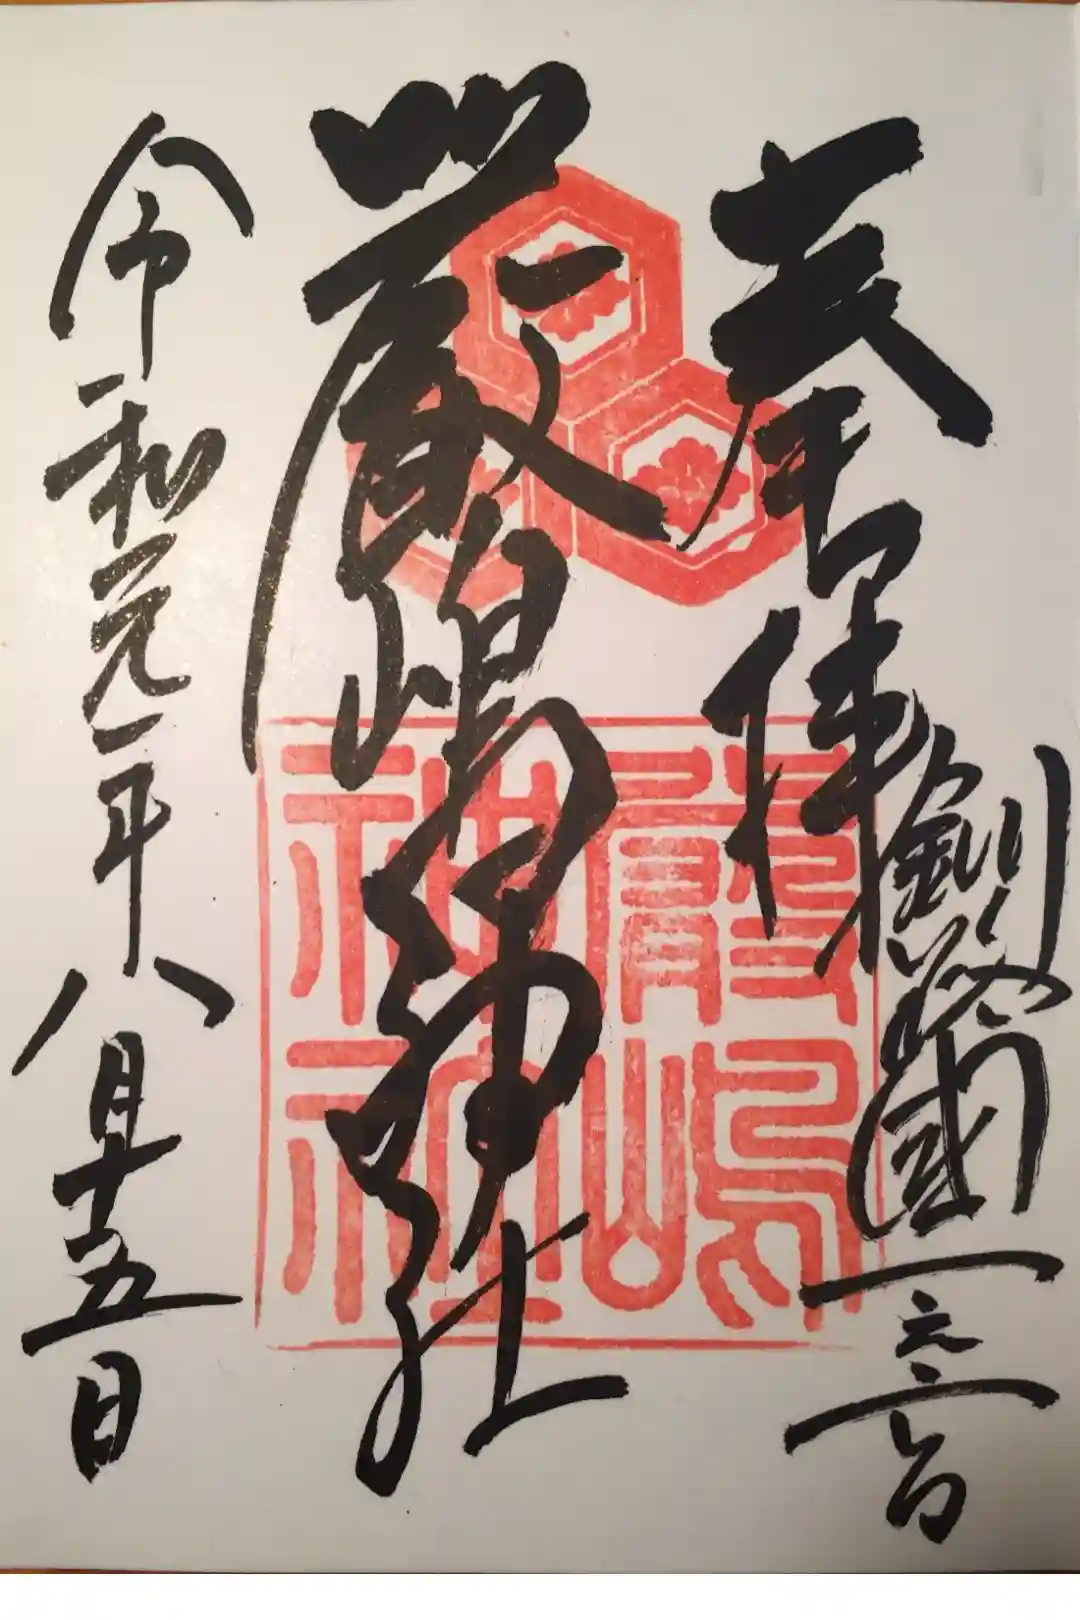 奉拝
釧路國一之宮
厳嶋神社
嚴嶋
神社
令和元年八月十五日